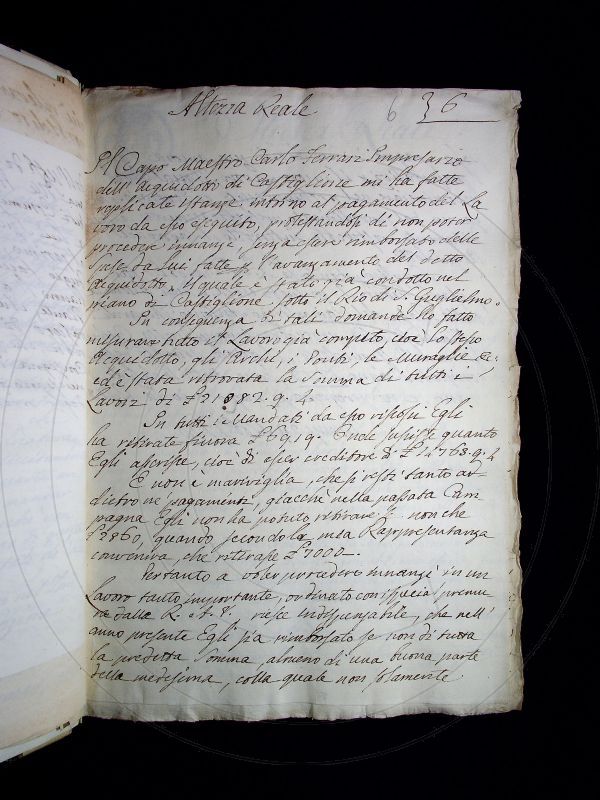 Altezza Reale
6 36
Il Capo Maestro Carlo Ferrari Impresario
dell' Acquidotto di Castiglione mi ha fatte
replicate istanze intorno al pagamento del La
voro da esso eseguito, protestandosi di non poter
procedere innanzi senza essere rimborsato delle
spese da lui fatte l'avanzamento del detto
Acquidotto, il quale è stato già condotto nel
piano di Castiglione sotto il Rio di S. Guglielmo.
In conseguenza di tali domande ho fatto
misurare tutto il Lavoro già compito, cioè lo stesso
Acquidotto, gli Archi, i Ponti, le Muraglie &c
ed è stata ritrovata la somma di tutti i
Lavori di £ 21082. 9. 4
In tutti i Mandati da esso Egli
ha ritirate finora £ 6919. Onde quanto
Egli asserisce, cioè di esser creditore di £ 14763. 9. 4
E non è maraviglia, che si resti tanto ad
dietro ne' pagamenti, giacchè nella passata Cam
pagna Egli non ha potuto ritirare non che
£ 3860, quando secondo la mia Rappresentanza
conveniva, che ritirasse £ 7000
Pertanto a voler procedere innanzi in un
Lavoro tanto importante, ordinato con ispecial premu
ra dalla R. A. V. riesce indispensabile, che nell'
anno presente Egli sia rimborsato se non di tutta
la predetta somma, almeno di una buona parte
della medesima, colla quale non solamente